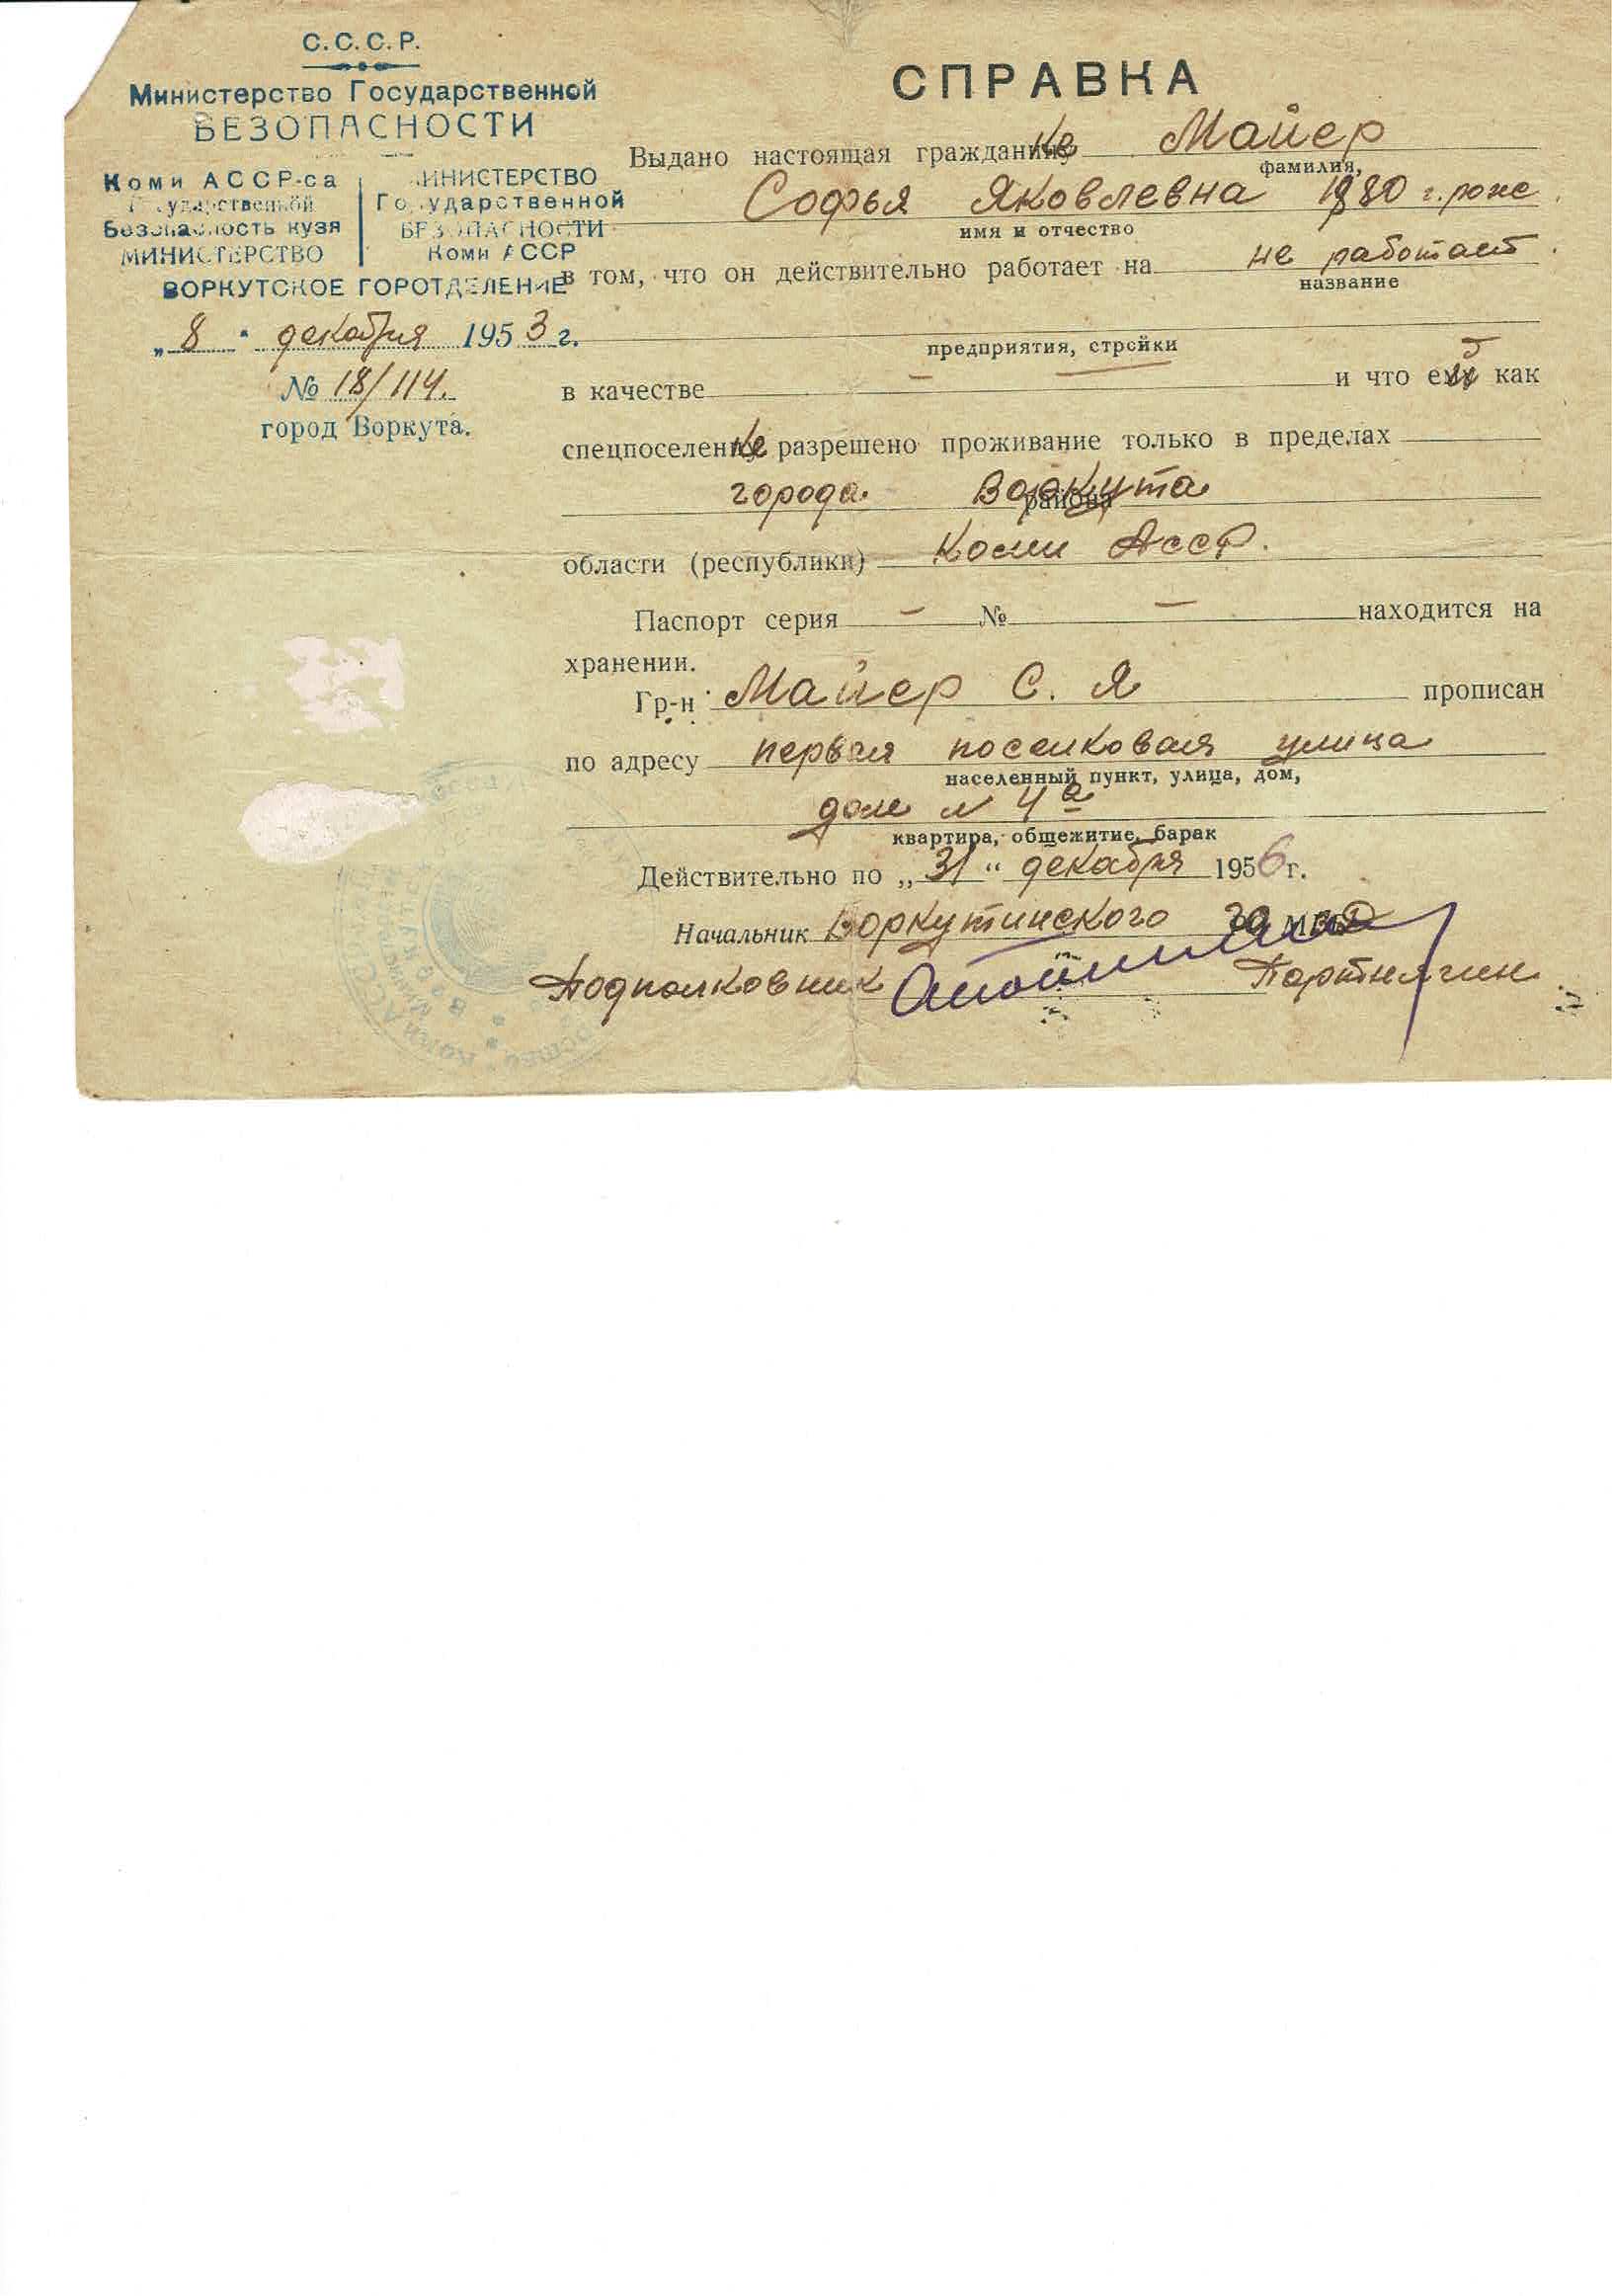 С.С.С.Р.
Министерство Государственной
БЕЗОПАСНОСТИ
Коми АССР-са
Государственной
Безопасность кузя
МИНИСТЕРСТВО
МИНИСТЕРСТВО
Государственной
БЕЗОПАСНОСТИ
Коми АССР
ВОРКУТСКОЕ ГОРОТДЕЛЕНИЕ
„8" декабря 1953 г.
№ 18/114.
город Воркута.
СПРАВКА
Выдано настоящая гражданке Майер
фамилия,
Софья Яковлевна 1880 г. рож.
имя и отчество
в том, что он действительно работает на не работает
название
предприятия, стройки
в качестве — — и что ей как
спецпоселенке разрешено проживание только в пределах
города Воркута
района
области (республики) Коми Асср.
Паспорт серия — № — находится на
хранении.
Гр-н Майер С. Я прописан
по адресу первая поселковая улица
населенный пункт, улица, дом,
дом № 4а
квартира, общежитие, барак
Действительно по „31" декабря 1956 г.
Начальник Воркутинского ГО МВД
Подполковник Портнягин